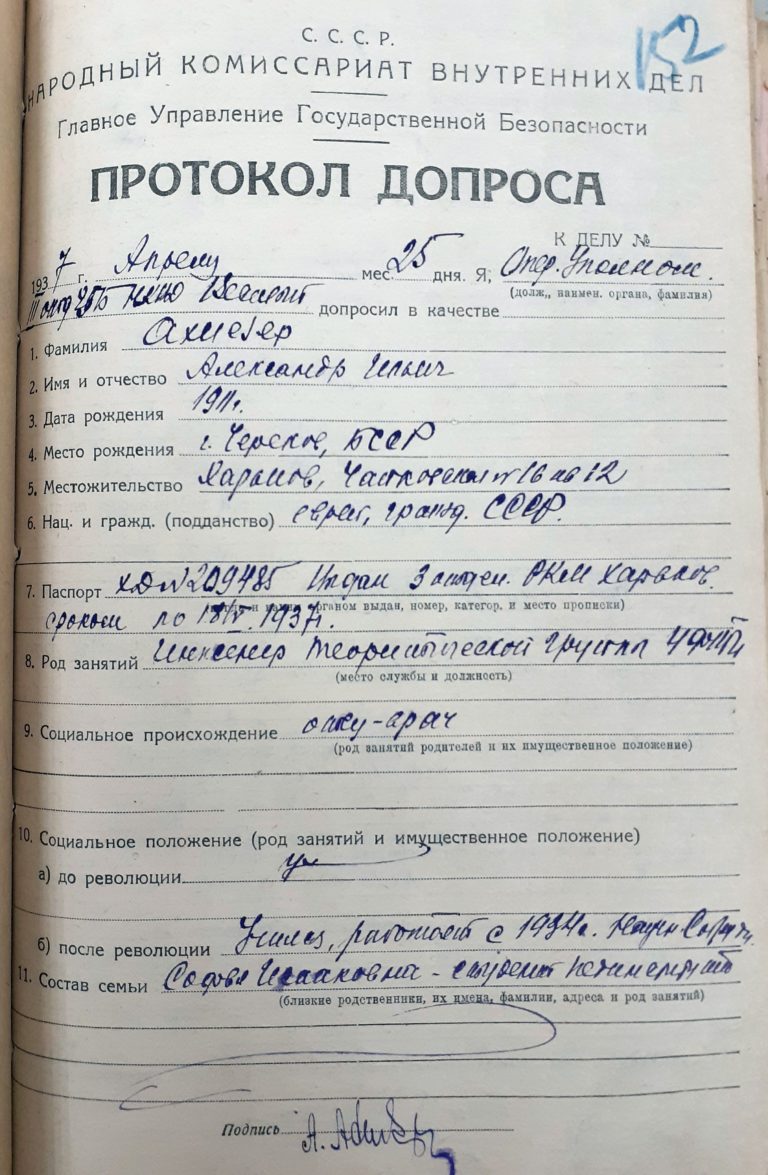 152
С. С. С. Р.
НАРОДНЫЙ КОМИССАРИАТ ВНУТРЕННИХ ДЕЛ
Главное Управление Государственной Безопасности
ПРОТОКОЛ ДОПРОСА
К ДЕЛУ №
1937 г. Апрель мес. 25 дня. Я, Опер. Уполном.
(долж., наимен. органа, фамилия)
III отд УГБ НКВД допросил в качестве
1. Фамилия Ахиезер
2. Имя и отчество Александр Ильич
3. Дата рождения 1911г.
4. Место рождения г. Чериков, БССР
5. Местожительство Харьков, Чайковская № 16 кв 12
6. Нац. и гражд. (подданство) еврей, гражд. СССР.
7. Паспорт ХД № 209485 Выдан 3 отдел. РКМ Харьков.
органом выдан, номер, категор. и место прописки)
сроком по 1937г.
8. Род занятий Инженер теоретической группы УФТИ
(место службы и должность)
9. Социальное происхождение отец-врач
(род занятий родителей и их имущественное положение)
10. Социальное положение (род занятий и имущественное положение)
а) до революции уч
б) после революции Учился, работает с 1934г. Научн
11. Состав семьи Софья Исааковна - студент
(близкие родственники, их имена, фамилии, адреса и род занятий)
Подпись А. Ахиезер